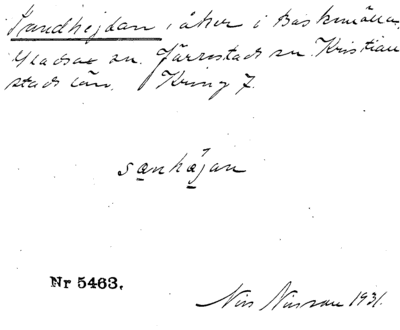 Sandhejdan i åker i Baskemölla,
Gladsax sn. Järrestads hd. Kristian
stads län. Kring 7.
sanhäjan
Nr 5463.
Nils Nilsson 1931.